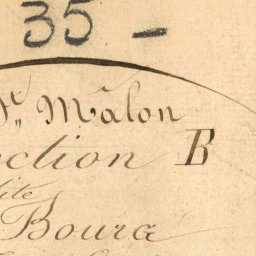 35 -
St. Mâlon
ection B
dite
Bourg